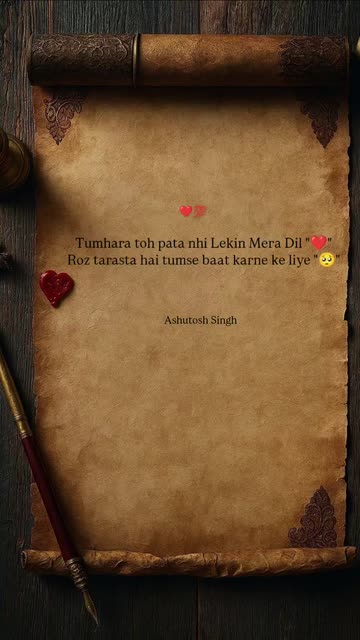 ❤️💯
Tumhara toh pata nhi Lekin Mera Dil "❤️"
Roz tarasta hai tumse baat karne ke liye "🥺"
Ashutosh Singh